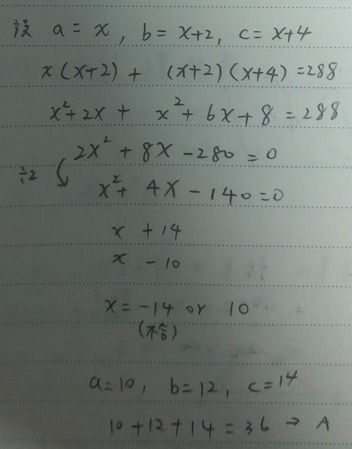 設 a = x , b = x+2 , c = x+4
x(x+2) + (x+2)(x+4) = 288
x²+2x + x²+6x+8 = 288
2x²+8x-280=0
÷2 x²+4x-140=0
x +14
x -10
x = -14 or 10
(不合)
a=10, b=12, c=14
10+12+14=36 → A